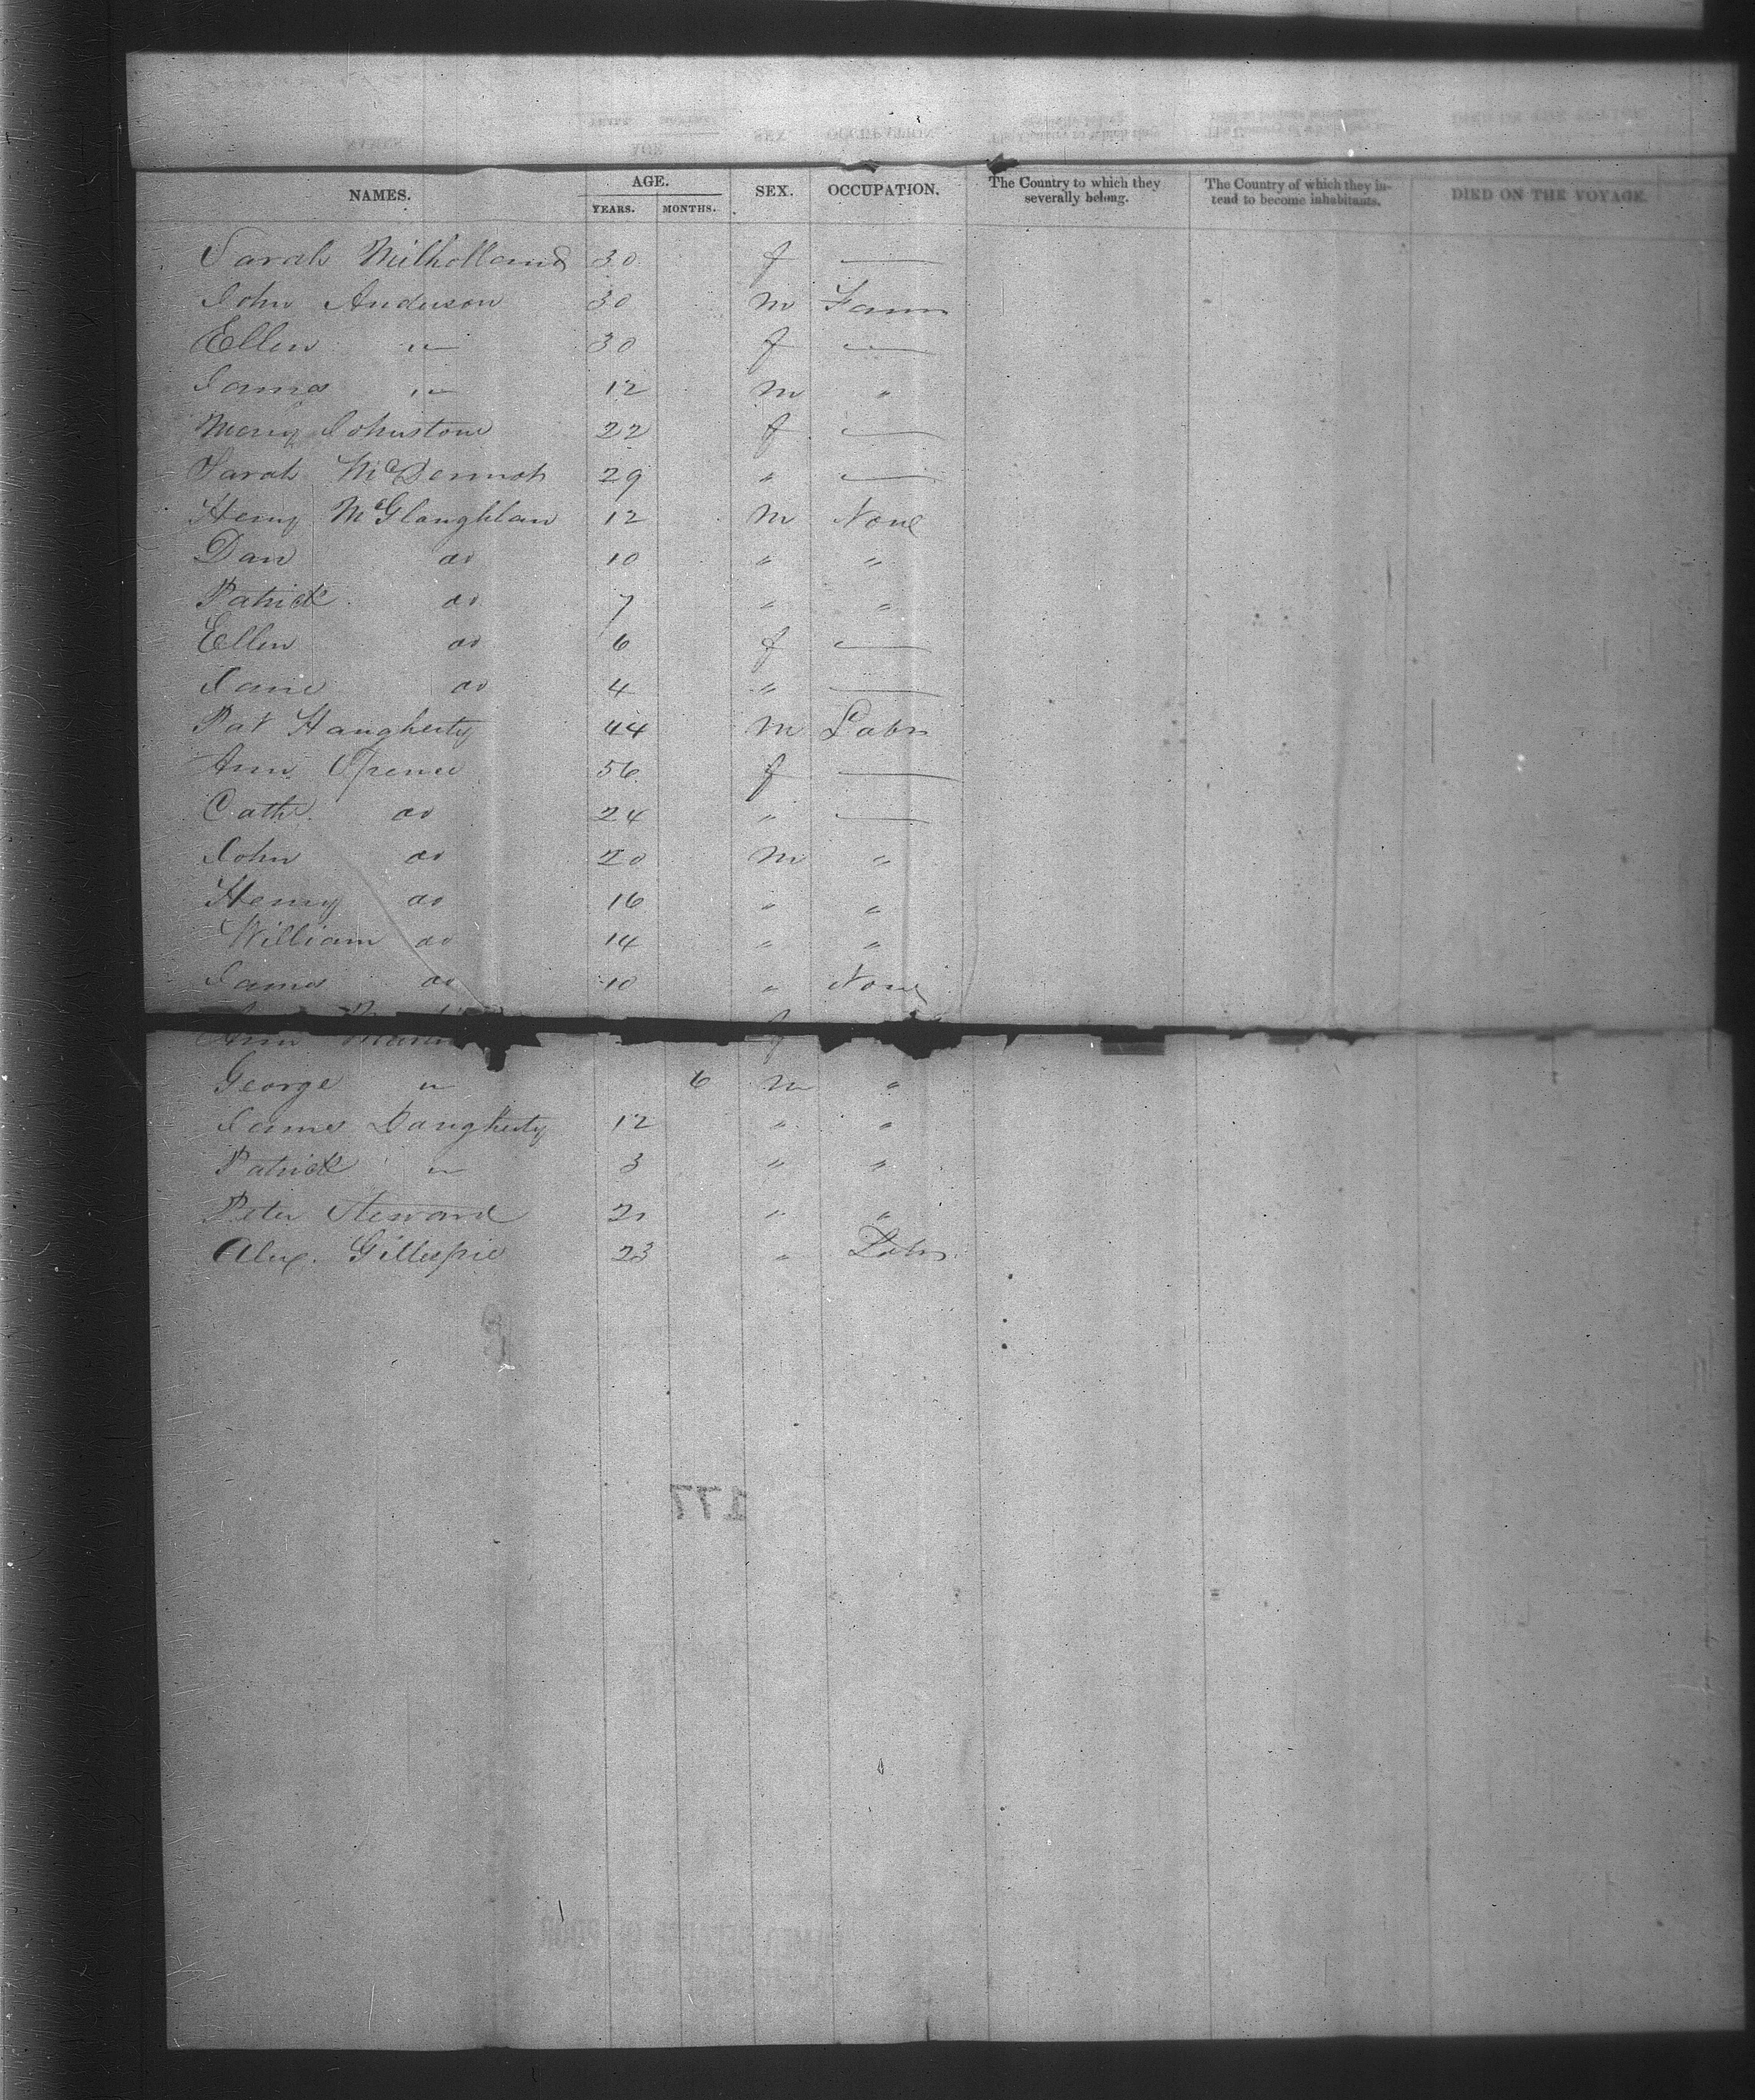 NAMES. AGE. SEX. OCCUPATION. The Country to which they severally belong. The Country of which they intend to become inhabitants. DIED ON THE VOYAGE.
YEARS. MONTHS.
Sarah Milholland 30 f —
John Anderson 30 m Farm
Ellen " 30 f —
James " 12 m "
Mary Johnstone 22 f —
Sarah McDermot 29 " —
Henry McGlaughlan 12 m None
Dan do 10 " "
Patrick do 7 " "
Ellen do 6 f —
Jane do 4 " —
Pat Haugherty 44 m Labr
Ann 56 f —
Cath. do 24 " —
John do 20 m "
Henry do 16 " "
William do 14 " "
James do 10 " None
Ann f
George " 6 m "
James Daugherty 12 " "
Patrick " 3 " "
Peter Steward 21 " "
Alex. Gillespie 23 " Labr.
177